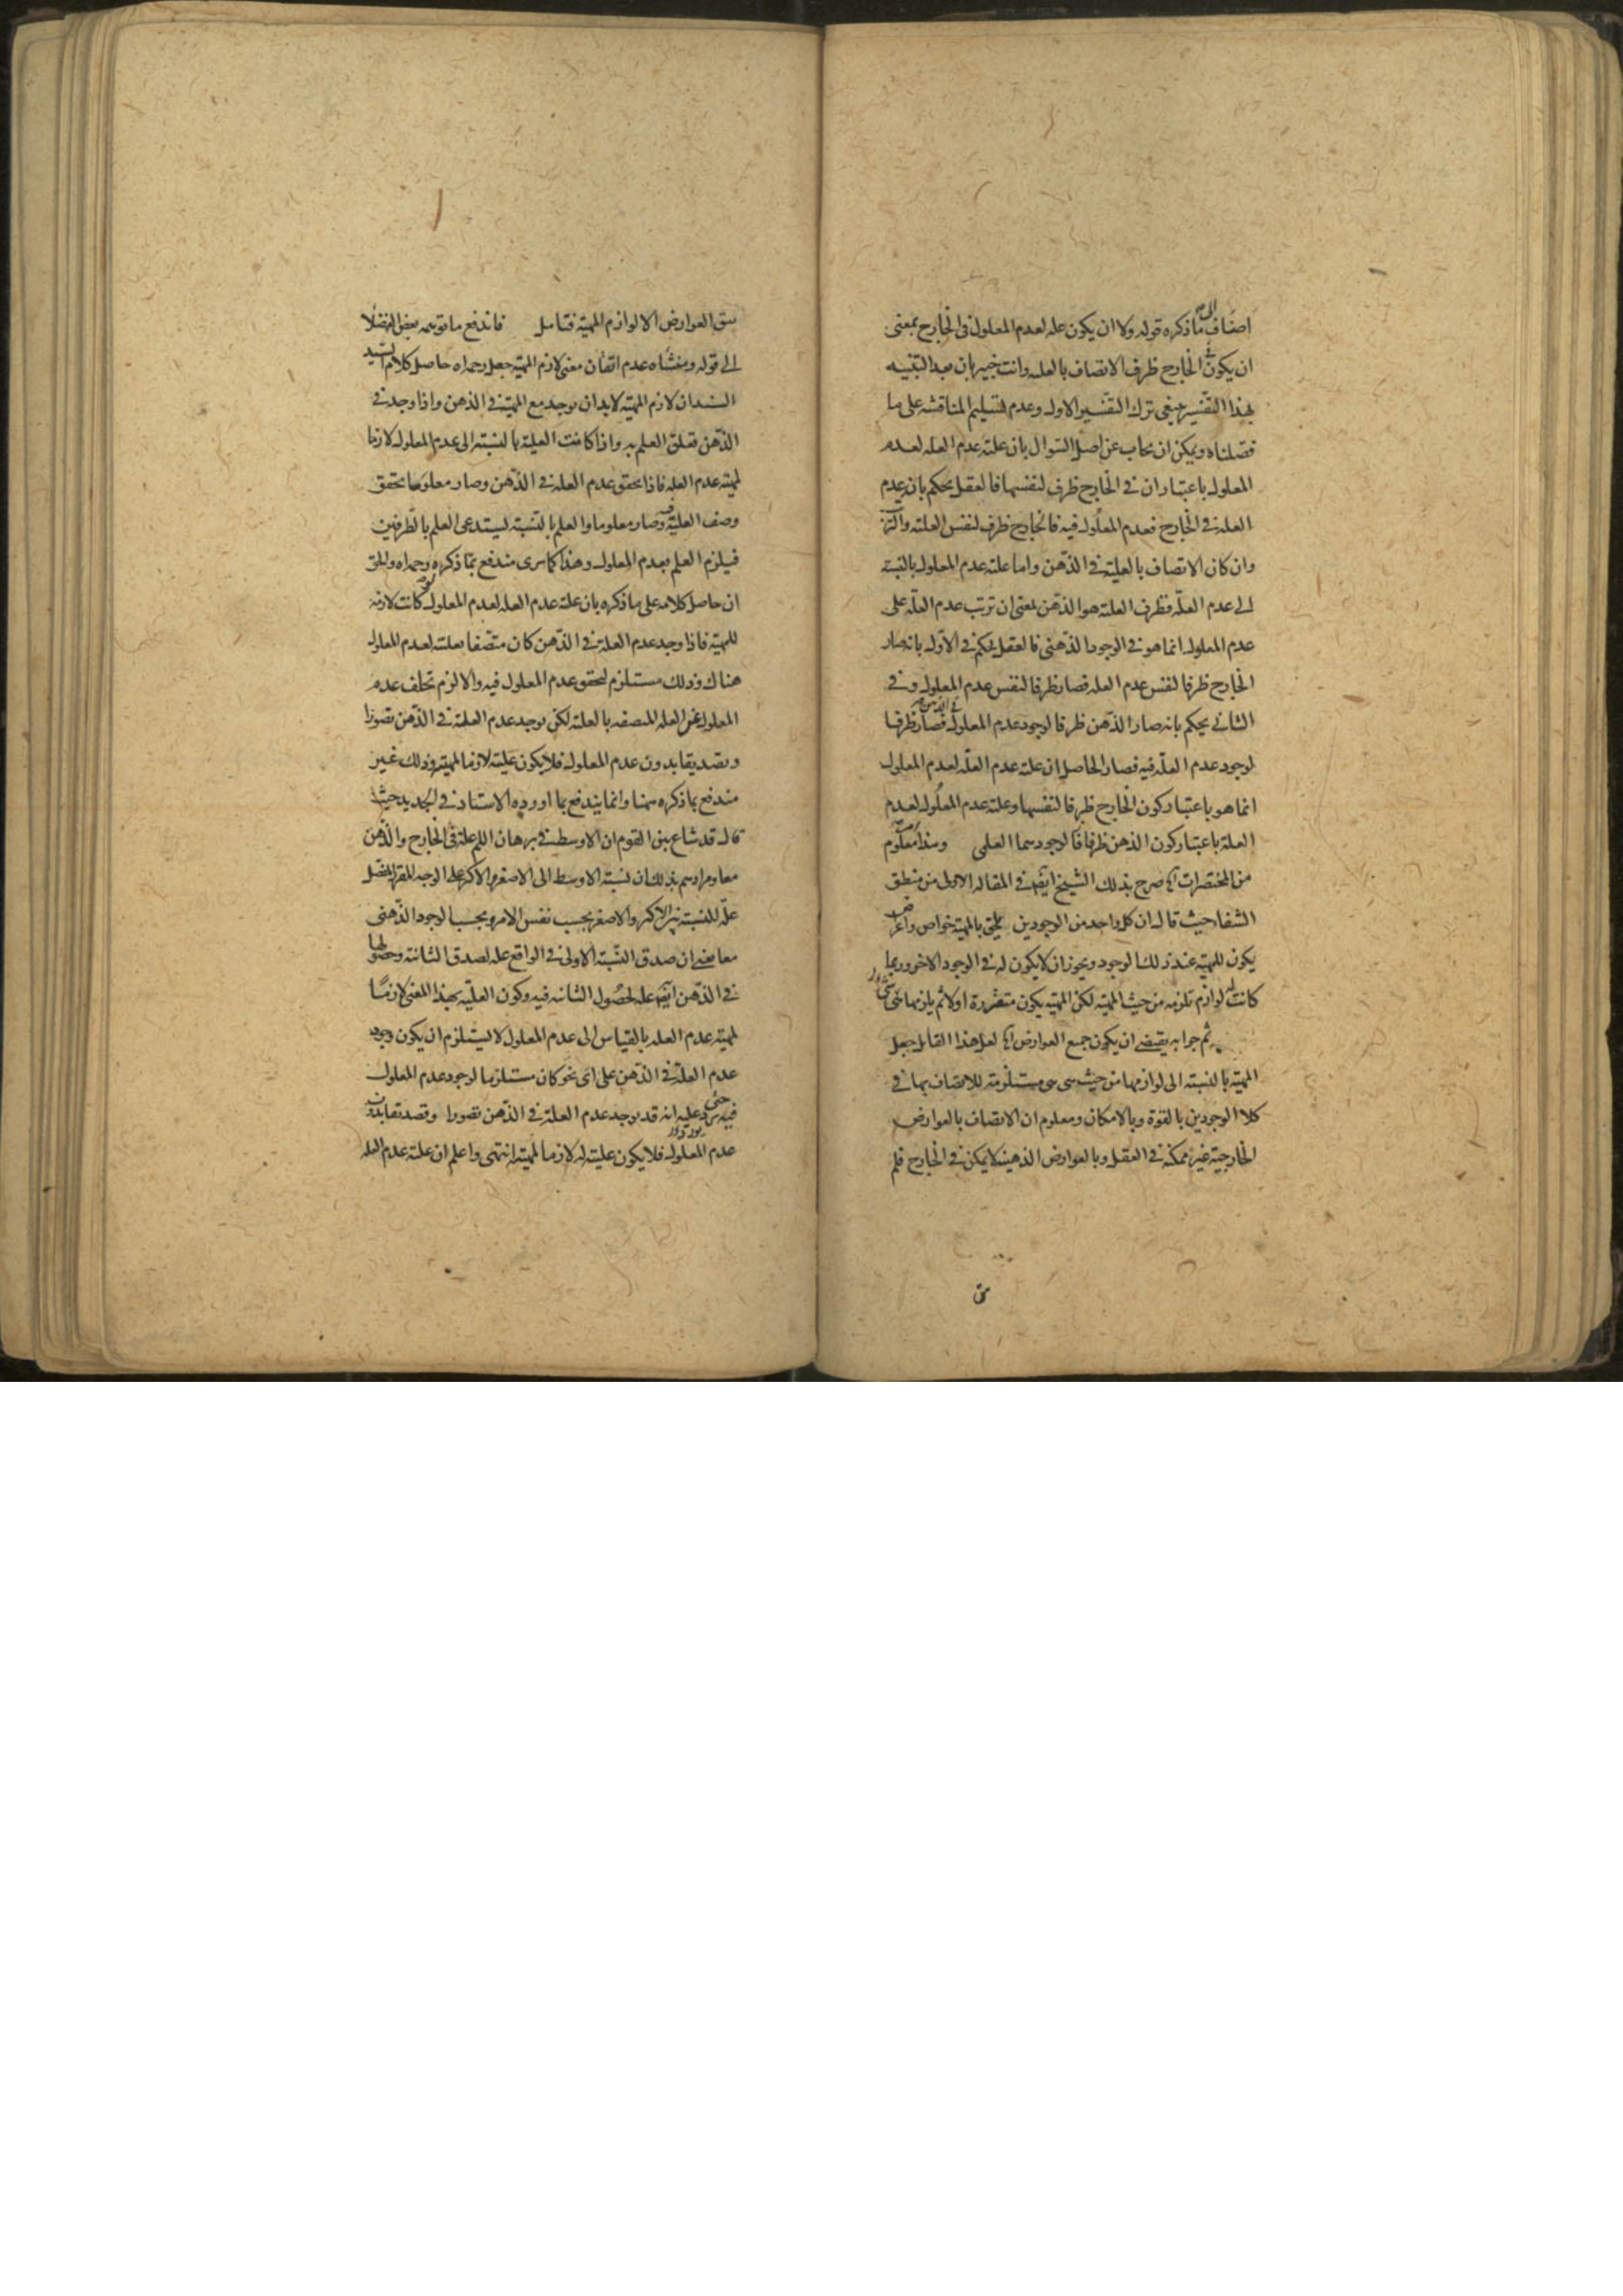 اضاف الى ما ذكره قوله ولا ان يكون علة لعدم المعلول فى الخارج بمعنى
ان يكون الخارج ظرف الاتصاف بالعلية وانت خبير بان بعد التقييد
بهذا التفسير ينبغى ترك التفسير الاول وعدم تسليم المناقشة على ما
فصلناه ويمكن ان يجاب عن اصل السوال بان علية عدم العلة لعدم
المعلول باعتبار ان فى الخارج ظرف لنفسهما فالعقل يحكم بان عدم
العلة فى الخارج فعدم المعلول فيه فالخارج ظرف لنفس العلية
وان كان الاتصاف بالعلية فى الذهن واما علية عدم المعلول بالنسبة
الى عدم العلة فظرف العلية هو الذهن بمعنى ان ترتب عدم العلة على
عدم المعلول انما هو فى الوجود الذهنى فالعقل يحكم فى الاول بانه صار
الخارج ظرفا لنفس عدم العلة فصار ظرفا لنفس عدم المعلول وفى
الثانى يحكم بانه صار الذهن ظرفا لوجود عدم المعلول فى الذهن فصار ظرفا
لوجود عدم العلة فيه فصار الحاصل ان علية عدم العلة لعدم المعلول
انما هو باعتبار كون الخارج ظرفا لنفسهما وعلية عدم المعلول لعدم
العلة باعتبار كون الذهن ظرفا لوجودهما العلمى وهذا معلوم
من المختصرات صرح بذلك الشيخ ايضا فى المقالة الاولى من منطق
الشفا حيث قال ان كل واحد من الوجودين يلحق بالمهية خواص واعراض
يكون للمهية عند ذلك الوجود ويجوز ان لا يكون له فى الوجود الاخر وربما
كانت له لوازم تلزمه من حيث المهية لكن المهية يكون متقررة اولا ثم يلزمها شى
ثم جوابه يقتضى ان يكون جميع العوارض لعل هذا القايل جعل
المهية بالنسبة الى لوازمها من حيث هى هى مستلزمة للاتصاف بها فى
كلا الوجودين بالقوة وبالامكان ومعلوم ان الاتصاف بالعوارض
الخارجية غير ممكنة فى العقل وبالعوارض الذهنية لا يمكن فى الخارج فلم
يبق العوارض الا لوازم المهية فتامل فاندفع ما توهمه بعض الفضلا
الى قوله ومنشاه عدم اتقان معنى لازم المهية جعل رحمه اه حاصل كلام السيد
السند ان لازم المهية لا بد ان يوجد مع المهية فى الذهن واذا وجد فى
الذهن تعلق العلم به واذا كانت العلية بالنسبة الى عدم المعلول لازما
لمهية عدم العلة فاذا تحقق عدم العلة فى الذهن وصار معلوما تحقق
وصف العلية فيه وصار معلوما والعلم بالنسبة يستدعى العلم بالطرفين
فيلزم العلم بعدم المعلول وهذا كما ترى مندفع بما ذكره رحمه اه والحق
ان حاصل كلامه على ما ذكره بان علية عدم العلة لعدم المعلول لو كانت لازمة
للمهية فاذا وجد عدم العلة فى الذهن كان متصفا بعلية لعدم المعلول
هناك وذلك مستلزم لتحقق عدم المعلول فيه والا لزم تخلف عدم
المعلول عن العلة المتصفة بالعلية لكن يوجد عدم العلة فى الذهن تصورا
وتصديقا بدون عدم المعلول فلا يكون علية لازما لمهية وذلك غير
مندفع بما ذكره ههنا وانما يندفع بما اورده الاستاد فى الجديد حيث
قال قد شاع بين القوم ان الاوسط فى برهان اللم علة فى الخارج والذهن
معا ومرادهم بذلك ان نسبة الاوسط الى الاصغر والاكبر على الوجه المقرر المفصل
علة للنسبة بين الاكبر والاصغر بحسب نفس الامر وبحسب الوجود الذهنى
معا بمعنى ان صدق النسبة الاولى فى الواقع علة لصدق الثانية وحصولها
فى الذهن ايضا علة لحصول الثانية فيه وكون العلية بهذا المعنى لازما
لمهية عدم العلة بالقياس الى عدم المعلول لا يستلزم ان يكون وجود
عدم العلة فى الذهن على اى نحو كان مستلزما لوجود عدم المعلول
فيه حتى يرد عليه انه قد يوجد عدم العلة فى الذهن تصورا وتصديقا بدون
عدم المعلول فلا يكون علية له لازما لمهية انتهى واعلم ان علية عدم العلة